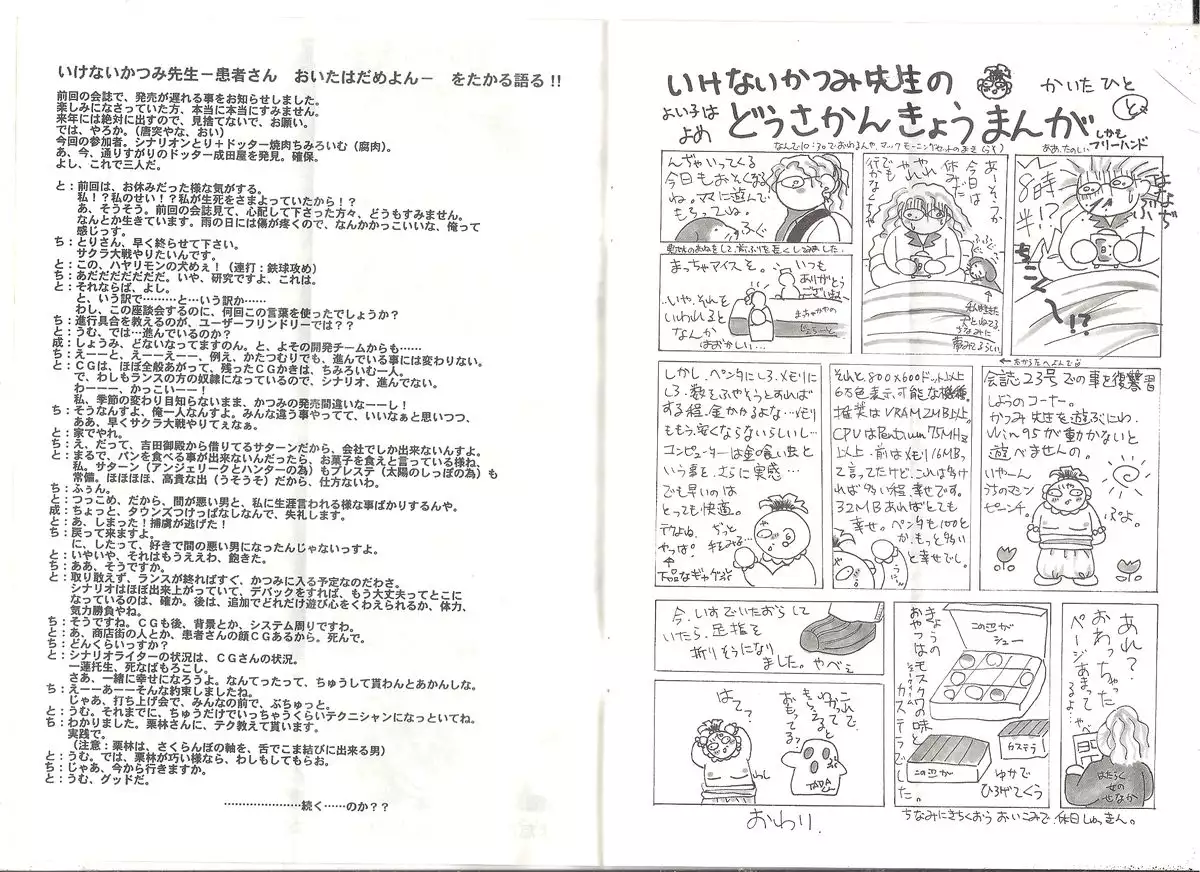 いけないかつみ先生－患者さん　おいたはだめよん－　をたかる語る!!
前回の会誌で、発売が遅れる事をお知らせしました。
楽しみになさっていた方、本当に本当にすみません。
来年には絶対に出すので、見捨てないで、お願い。
では、やろか。（唐突やな、おい）
今回の参加者。シナリオンとり＋ドッター焼肉ちみろいむ（腐肉）。
あ、今、通りすがりのドッター成田屋を発見。確保。
よし、これで三人だ。
と：前回は、お休みだった様な気がする。
私！？私のせい！？私が生死をさまよっていたから！？
あ、そうそう。前回の会誌見て、心配して下さった方々、どうもすみません。
なんとか生きています。雨の日には傷が疼くので、なんかかっこいいな、俺って
感じっす。
ち：とりさん、早く終らせて下さい。
サクラ大戦やりたいんです。
と：この、ハヤリモンの犬めぇ！（連打：鉄球攻め）
ち：あだだだだだだだ。いや、研究ですよ、これは。
と：それならば、よし。
と、いう訳で………と…いう訳か……
わし、この座談会するのに、何回この言葉を使ったでしょうか？
ち：進行具合を教えるのが、ユーザーフリンドリーでは？？
と：うむ、では…進んでいるのか？
成：しょうみ、どないなってますのん。と、よその開発チームからも……
ち：えーーと、えーーえーー、例え、かたつむりでも、進んでいる事には変わりない。
と：ＣＧは、ほぼ全般あがって、残ったＣＧかきは、ちみろいむ一人。
で、わしもランスの方の奴隷になっているので、シナリオ、進んでない。
わーーー、かっこいーー！
私、季節の変わり目知らないまま、かつみの発売間違いなーーし！
ち：そうなんすよ、俺一人なんすよ。みんな違う事やってて、いいなぁと思いつつ、
ああ、早くサクラ大戦やりてぇなぁ。
と：家でやれ。
ち：え、だって、吉田御殿から借りてるサターンだから、会社でしか出来ないんすよ。
と：まるで、パンを食べる事が出来ないんだったら、お菓子を食えと言っている様ね、
私。サターン（アンジェリークとハンターの為）もプレステ（太陽のしっぽの為）も
常備。ほほほほ、高貴な出（うそうそ）だから、仕方ないわ。
ち：ふぅん。
と：つっこめ、だから、間が悪い男と、私に生涯言われる様な事ばかりするんや。
成：ちょっと、タウンズつけっぱなしなんで、失礼します。
と：あ、しまった！捕虜が逃げた！
ち：戻って来ますよ。
に、したって、好きで間の悪い男になったんじゃないっすよ。
と：いやいや、それはもうええわ、飽きた。
ち：ああ、そうですか。
と：取り敢えず、ランスが終ればすぐ、かつみに入る予定なのだわさ。
シナリオはほぼ出来上がっていて、デバックをすれば、もう大丈夫ってとこに
なっているのは、確か。後は、追加でどれだけ遊び心をくわえられるか、体力、
気力勝負やね。
ち：そうですね。ＣＧも後、背景とか、システム周りですわ。
と：あ、商店街の人とか、患者さんの顔ＣＧあるから。死んで。
ち：どんくらいっすか？
と：シナリオライターの状況は、ＣＧさんの状況。
一蓮托生、死なばもろこし。
さあ、一緒に幸せになろうよ。なんてったって、ちゅうして貰わんとあかんしな。
ち：えーーあーーそんな約束しましたね。
じゃあ、打ち上げ会で、みんなの前で、ぶちゅっと。
と：うむ。それまでに、ちゅうだけでいっちゃうくらいテクニシャンになっといてね。
ち：わかりました。栗林さんに、テク教えて貰います。
実践で。
（注意：栗林は、さくらんぼの軸を、舌でこま結びに出来る男）
と：うむ。では、栗林が巧い様なら、わしもしてもらお。
ち：じゃあ、今から行きますか。
と：うむ、グッドだ。
…………………続く……のか？？
いけないかつみ先生の
かいた ひと
と
よい子は
よめ
どうさかんきょうまんが
しかも
フリーハンド
ああ、たのしい
8時
半!?
ちこく
〜!?
あーそっか
今日は
休みだ
やれやれ
んぢゃいってくる
今日もおそくなる
ね。ママに遊んで
もらってね。
まっちゃアイスを。
いつも
ありがとう
ございますね
‥いや、それを
いわれると
なんか
はおかしい…
会誌23号での事を復讐習
しようのコーナー。
かつみ先生を遊ぶにわ、
Win95が動かないと
遊べませんの。
いやーん
うちのマシン
ぷよ。
それと、800×600ドット以上
6万色表示、可能な機種。
推奨はVRAM2MB以上。
CPUはPentium 75MHz
以上。前はメモリ16MB、
って言ってたけど、これは多け
れば多い程、幸せです。
32MBあればとても
幸せ。ペンタも100と
か、もっと多い
と幸せでし。
しかし、ペンタにしろ、メモリに
しろ、数をふやそうとすれば
する程、金かかるよな…メモリ
ももう、安くならないらしいし…
コンピューターは金の食い虫と
いう事を、さらに実感…
でも早いのは
とっても快適。
やっぱ。
下品なギャグだ
あれ？
おわっちゃった
ページあまって
るよ…
はたらく
せなか
きょうの
おやつはモスクワの味
カステラでした。
この辺が
シュー
カステラ
この辺が
ゆかで
ひろげてくう
ちなみにきちくおう おいこみで、休日しゅっきん。
今、いすでいたおらして
いたら、足指を
折りそうになり
ました。やべぇ
はて？
これで、
わかって
もらえると
おもってる？
TADA
おわり.